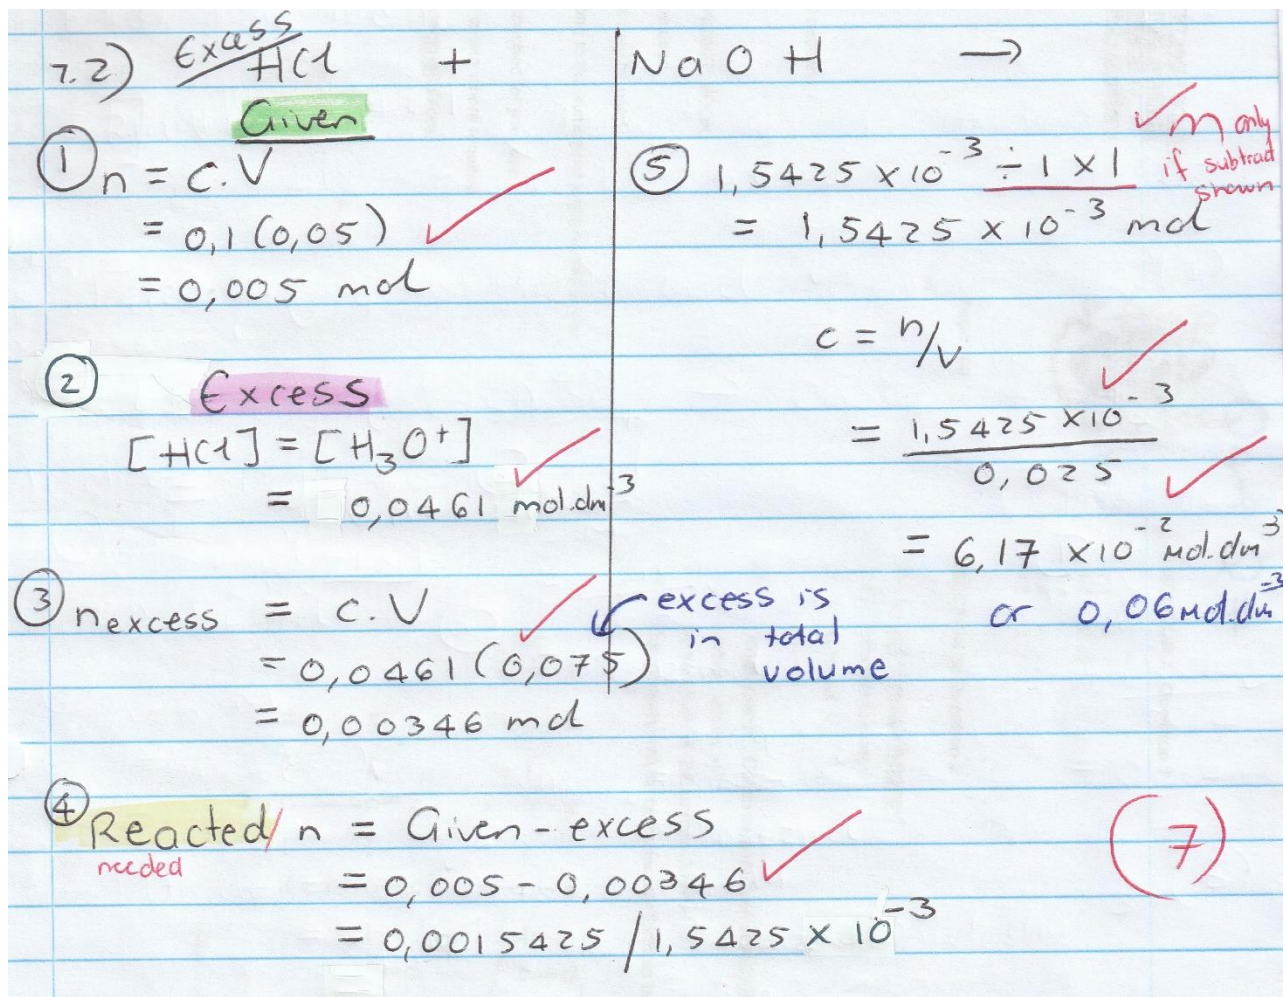 7.2) Excess HCl + NaOH →
Given
① n = c.V
= 0,1(0,05)
= 0,005 mol
② Excess
[HCl] = [H₃O⁺]
= 0,0461 mol.dm⁻³
③ n excess = c.V
= 0,0461(0,075)
= 0,00346 mol
excess is
in total
volume
④ Reacted/ n = Given - excess
needed
= 0,005 - 0,00346
= 0,0015425 / 1,5425 × 10⁻³
⑤ 1,5425 × 10⁻³ ÷ 1 × 1
= 1,5425 × 10⁻³ mol
m only
if subtract
shown
c = n/v
= 1,5425 × 10⁻³
0,025
= 6,17 × 10⁻² mol.dm⁻³
or 0,06 mol.dm⁻³
(7)